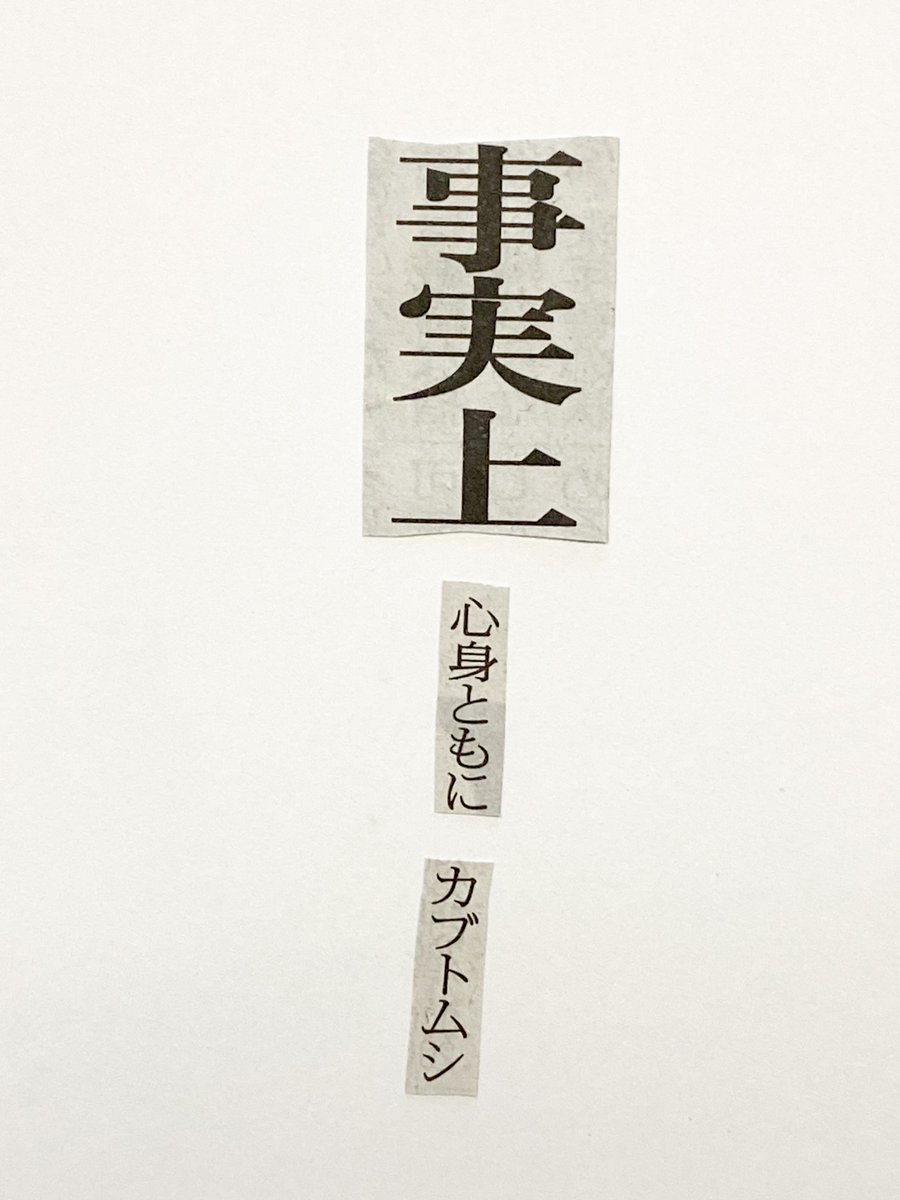 事実上
心身ともに
カブトムシ